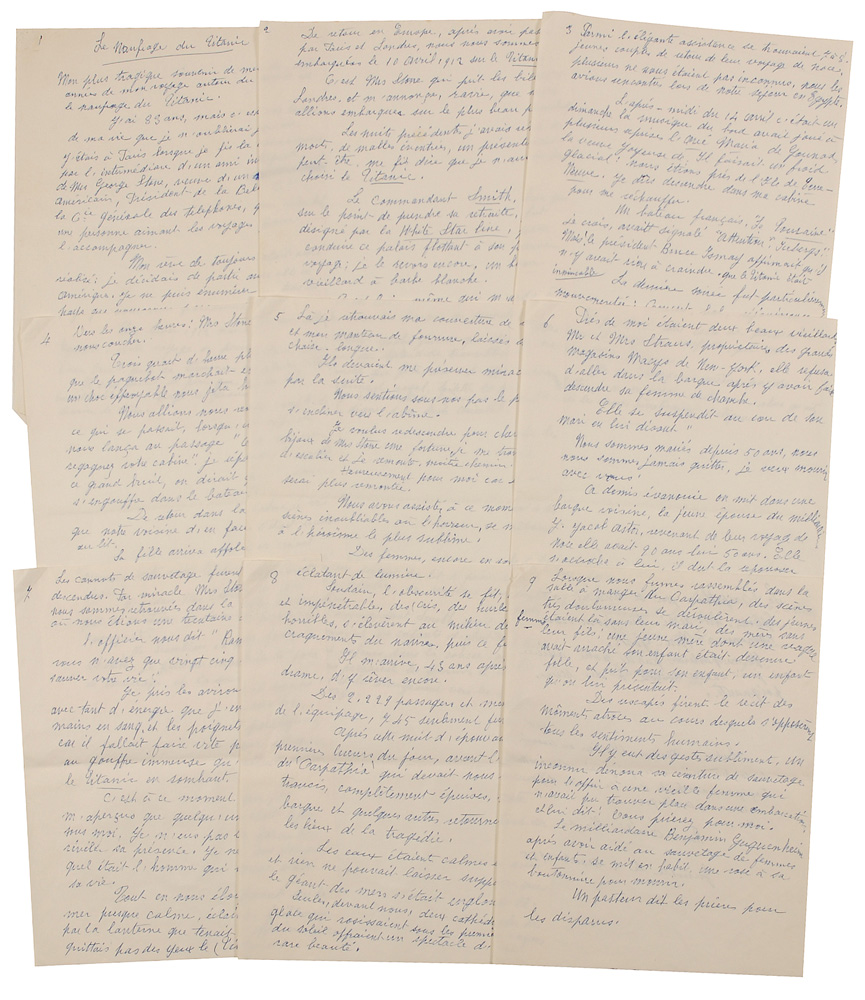 1
Le Naufrage du Titanic
Mon plus tragique souvenir de mes
années de mon voyage autour du
le naufrage du Titanic.
J'ai 83 ans, mais c'est
de ma vie que je n'oublierai j
J'étais à Paris lorsque je fis la
par l'intermédiaire d'un ami in
de Mrs George Stone, veuve d'un
Américain, Président de la Bell
la Cie Générale des téléphones, q
une personne aimant les voyages
l'accompagner.
Mon rêve de toujours
réalisé; je décidais de partir au
Amérique. Je ne puis énumérer
2
De retour en Europe, après avoir pas
par Paris et Londres, nous nous sommes
embarquées le 10 avril 1912 sur le Titanic
C'est Mrs Stone qui prit les bil
Londres, et m'annonça, ravie, que n
allions embarquer sur le plus beau p
Les nuits précédents, j'avais vu
morts, de malles éventrées, un présente
peut être, me fit dire que je n'avai
choisi le Titanic.
Le commandant Smith,
sur le point de prendre sa retraite,
désigné par la White Star line,
conduire ce palais flottant à son p
voyage; je le revois encore, un b
vieillard à barbe blanche.
3
Parmi l'élégante assistance se trouvaient 7 à 8
jeunes couples de retour de leur voyage de noce,
plusieurs ne nous étaient pas inconnus, nous les
avions rencontrés lors de notre séjour en Egypte.
L'après-midi du 14 avril c'était un
dimanche la musique du bord avait joué à
plusieurs reprises l'Avé Maria de Gounod,
la veuve joyeuse. Il faisait un froid
glacial; nous étions près de l'Ile de Terre-
Neuve. Je dus descendre dans ma cabine
pour me réchauffer.
Un bateau français, "Le Touraine"
je crois, avait signalé "Attention! Icebergs"
Mais le président Bruce Ismay affirmait qu'il
n'y avait rien à craindre, que le Titanic était
insubmersible
La dernière soirée fut particulièrement
mouvementée!
4
Vers les onze heures! Mrs Stone
nous coucher.
Trois quart d'heure pl
que le paquebot marchait e
un choc effroyable nous jeta h
Nous allions nous re
ce qui se passait, lorsqu'
nous lança au passage "
regagnez votre cabine". je répo
ce grand bruit, on dirait q
s'engouffre dans le bateau
De retour dans la
que notre voisine d'en fac
au lit.
Sa fille arriva affolé
5
Là je retrouvais ma couverture de
et mon manteau de fourrure, laissés s
chaise-longue.
Ils devaient me préserver mirac
par la suite.
Nous sentions sous nos pas le p
s'incliner vers l'abîme.
Je voulus redescendre pour cher
bijoux de Mrs Stone une fortune, je me tro
d'escalier et je remonte, moitié chemin.
Heureusement pour moi car
serai plus remontée.
Nous avons assisté, à ce mom
scènes inoubliables ou l'horreur, se m
à l'héroïsme le plus sublime.
Des femmes, encore en so
6
Près de moi étaient deux beaux vieillards,
Mr et Mrs Straus, propriétaires des grands
magasins Macys de New-York. elle refusa
d'aller dans la barque après y avoir fait
descendre sa femme de chambre.
Elle se suspendit au cou de son
mari en lui disant"
Nous sommes mariés depuis 50 ans, nous
nous sommes jamais quittés, je veux mourir
avec vous!
A demis évanouie on mit dans une
barque voisine, la jeune épouse du milliar.
J. Jacob Astor, revenant de leur voyage de
Noce elle avait 20 ans lui 50 ans. Elle
s'accrocha à lui, il dut la repousser
7
Les canots de sauvetage furent
descendus. Par miracle Mrs Stone
nous sommes retrouvées dans la
où nous étions une trentaine
L'officier nous dit "Ram
vous n'avez que vingt cinq
sauver votre vie!
Je pris les avirons
avec tant d'énergie que j'en
mains en sang, et les poignets
car il fallait faire vite p
au gouffre immense qu'
le Titanic en sombrant.
C'est à ce moment
m'aperçus que quelqu'un
sous moi. Je n'eus pas l
révéler sa présence. Je n
quel était l'homme qui
sa vie.
Tout en nous éloi
mer presque calme, éclair
par la lanterne que tenait
quittais pas des yeux le (Tit
8
éclatant de lumière.
Soudain, l'obscurité se fit,
et impénétrable, des cris, des hurle
horribles, s'élevèrent au milieu de
craquements du navire, puis ce f
Il m'arrive, 43 ans après
drame, d'y rêver encore.
Des 2.229 passagers et mem
de l'équipage, 745 seulement fu
Après cette nuit d'épouva
premières lueurs du jour, avant l
du "Carpathia" qui devait nous
transies, complètement épuisées,
barque et quelques autres retourne
les lieux de la tragédie.
Les eaux étaient calmes
et rien ne pouvait laisser suppo
le géant des mers s'était englou
Seules, devant nous, deux cathéd
glace qui rosissaient sous les premie
du soleil offraient un spectacle d
rare beauté.
9
Lorsque nous fûmes rassemblés dans la
salle à manger du Carpathia, des scènes
très douloureuses se déroulèrent; des jeunes
femmes étaient là sans leur mari, des mères sans
leur fils, une jeune mère dont une vague
avait arraché son enfant était devenue
folle, et prit pour son enfant, un enfant
qu'on lui présentait.
Des rescapés firent le récit des
moments atroces au cours desquels s'opposèrent
tous les sentiments humains.
Il y eut des gestes sublimes, un
inconnu dénoua sa ceinture de sauvetage
pour l'offrir à une vieille femme qui
n'avait pu trouver place dans une embarcation,
et lui dit! Vous prierez pour moi.
Le milliardaire Benjamin Guguenheim
après avoir aidé au sauvetage de femmes
et enfants, se mit en habit, une rose à sa
boutonnière pour mourir.
Un pasteur dit les prières pour
les disparus.